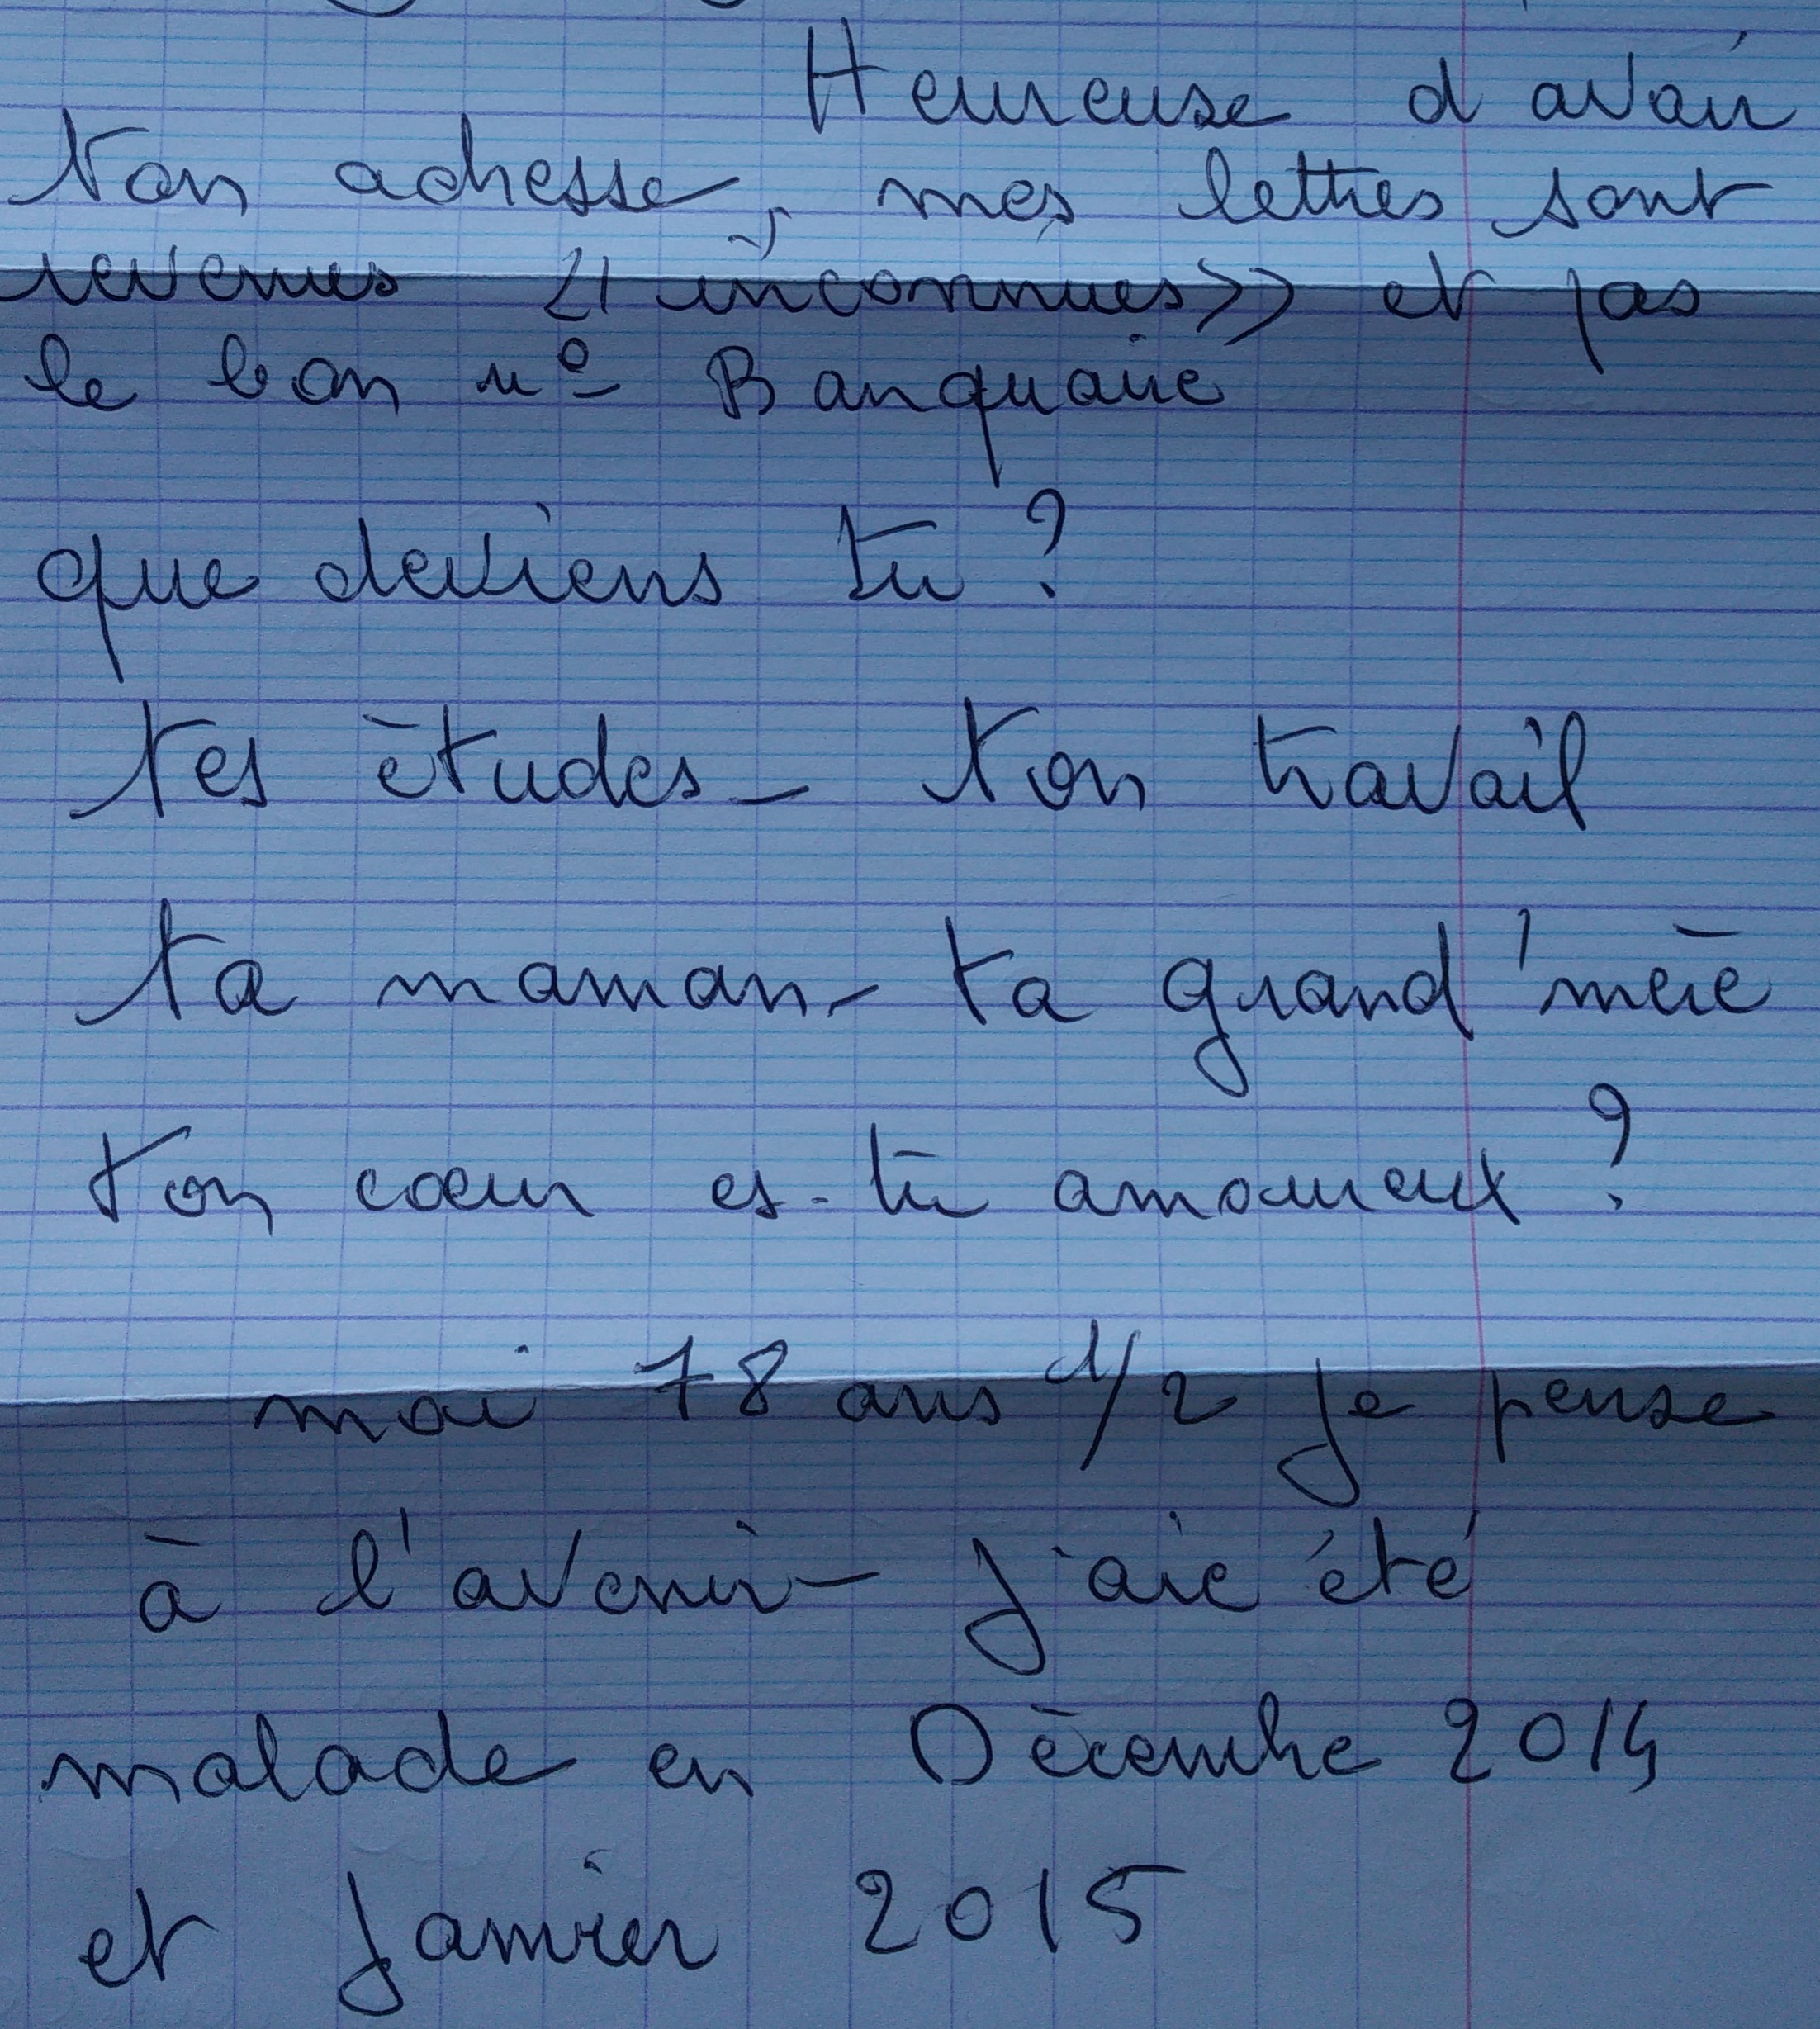 Heureuse d avoir
ton adresse, mes lettres sont
revenues << inconnues >> et pas
le bon n° Banquaire
que deviens tu ?
tes ètudes - ton travail
ta maman - ta grand'mère
ton cœur es-tu amoureux ?
moi 78 ans 1/2 je pense
à l'avenir - j'aie été
malade en Dècembre 2014
et Janvier 2015